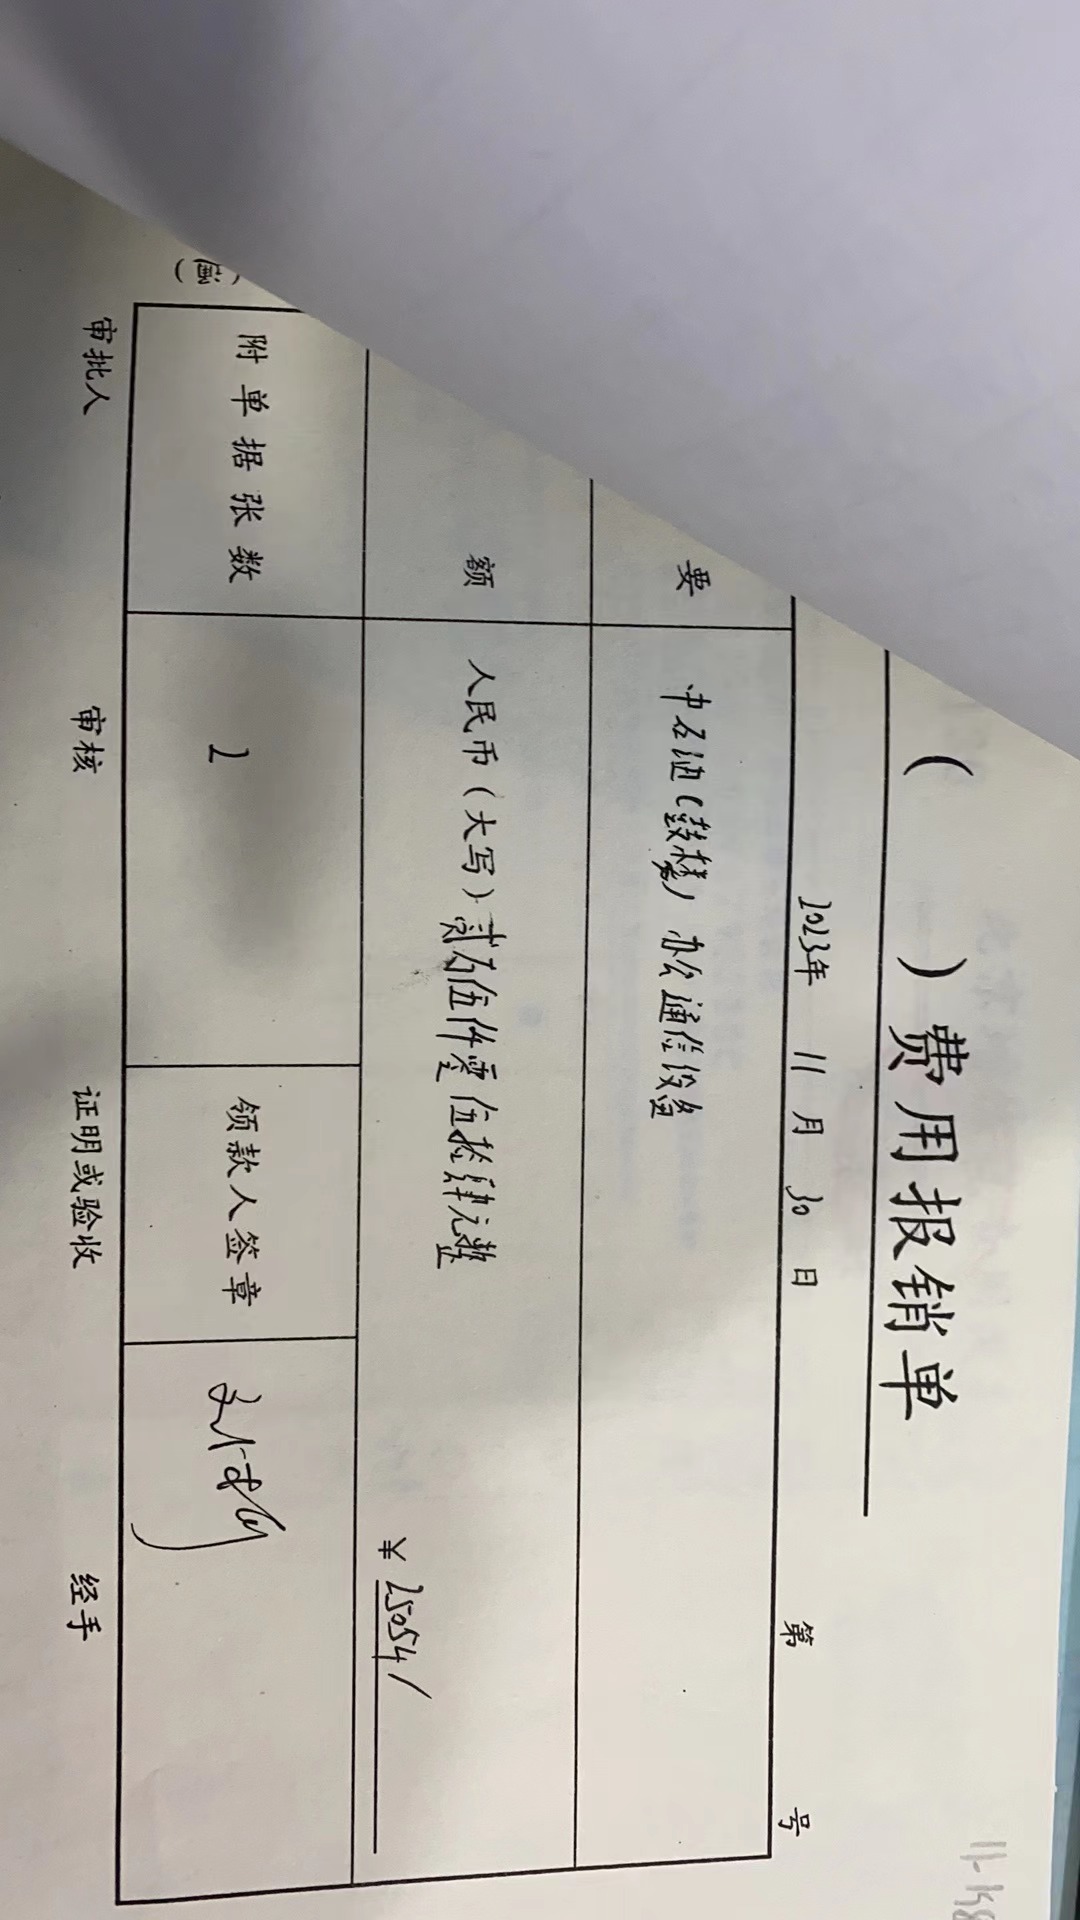 ( ) 费用报销单
2023年 11月 30日 第 号
要 中石油(鼓楼) 办公通信设备
额 人民币(大写) 贰万伍仟零伍拾肆元整
¥ 25054/
附单据张数 领款人签章
审批人 审核 证明或验收 经手